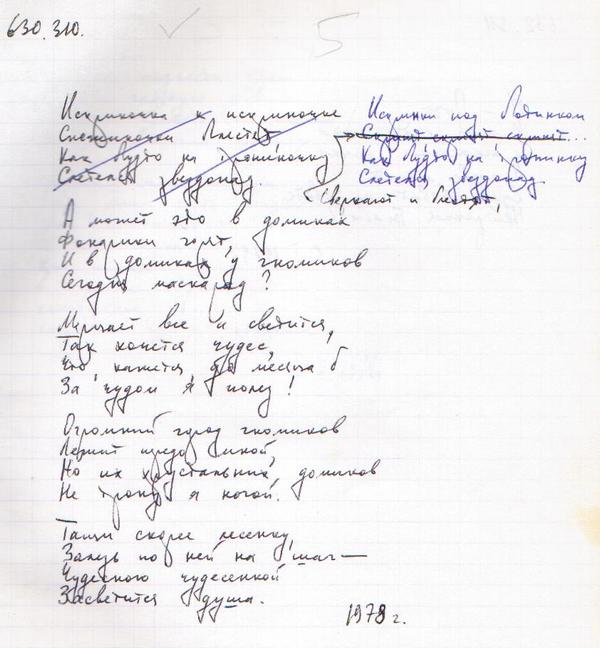 630.310.
5
Искриночка к искриночке
Снежиночки блестят
Как будто на тропиночку
Слетелся звездопад.
Искринки под ботинком
Скрипят скрипят скрипят...
Как будто на тропинку
Слетелся звездопад.
Сверкают и блестят,
А может это в домиках
Фонарики горят,
И в домиках у гномиков
Сегодня маскарад?
Мерцает все и светится,
Так хочется чудес,
Что, кажется, до месяца б
За чудом я полез!
Огромный город гномиков
Лежит предо мной,
Но их хрустальных домиков
Не трону я ногой.
Тащи скорее лесенку,
Залезь по ней на шаг —
Чудесного чудесенкой
Засветится душа.
1979 г.